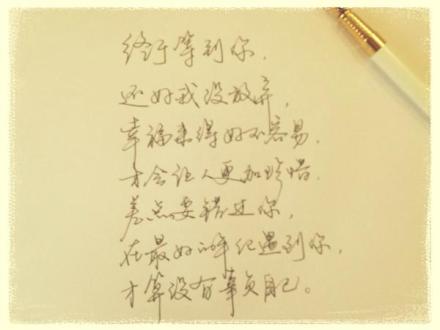 终于等到你,
还好我没放弃,
幸福来得好不容易,
才会让人更加珍惜.
差点要错过你,
在最好的年纪遇到你,
才算没有辜负自己。